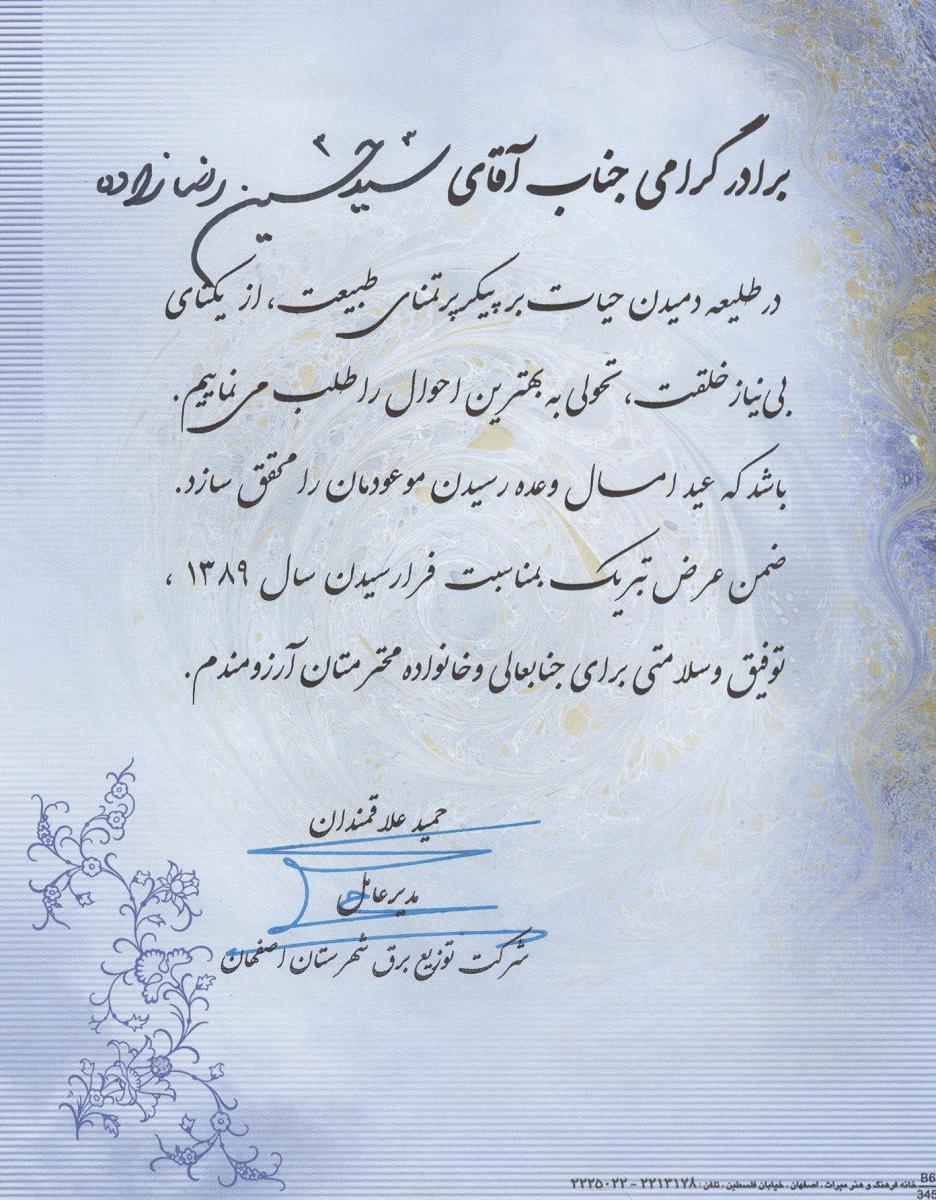 برادر گرامی جناب آقای سید حسین رضازاده
در طلیعه دمیدن حیات بر پیکر پرتمنای طبیعت، از یکتای
بی‌نیاز خلقت، تحولی به بهترین احوال را طلب می‌نماییم.
باشد که عید امسال وعده رسیدن موعودمان را محقق سازد.
ضمن عرض تبریک بمناسبت فرارسیدن سال ۱۳۸۹ ،
توفیق وسلامتی برای جنابعالی وخانواده محترمتان آرزومندم.
حمید علاقمندان
مدیرعامل
شرکت توزیع برق شهرستان اصفهان
خانه فرهنگ و هنر میراث، اصفهان، خیابان فلسطین، تلفن: ۲۲۱۳۱۷۸ - ۲۲۲۵۰۲۲
B6
345